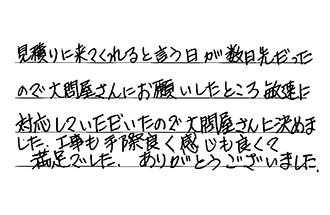 見積りに来てくれると言う日が数日先だった
ので大問屋さんにお願いしたところ敏速に
対応していただいたので大問屋さんに決めま
した。工事も手際良く感じも良くて
満足でした。ありがとうございました。